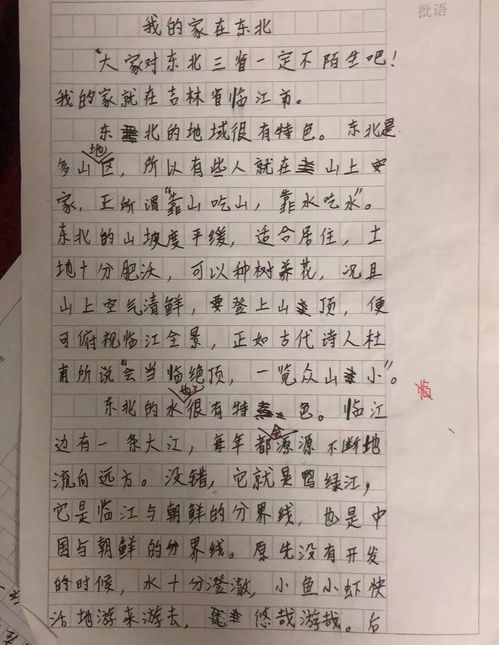 批语
我的家在东北
大家对东北三省一定不陌生吧!
我的家就在吉林省临江市。
东北的地域很有特色。东北是
多山地区,所以有些人就在山上安
家,正所谓“靠山吃山,靠水吃水”。
东北的山坡度平缓,适合居住,土
地十分肥沃,可以种树养花,况且
山上空气清鲜,要登上山顶,便
可俯视临江全景,正如古代诗人杜
甫所说“会当临绝顶,一览众山小”。
临
东北的水很有特色。临江
边有一条大江,每年都会源源不断地
流向远方。没错,它就是鸭绿江,
它是临江与朝鲜的分界线,也是中
国与朝鲜的分界线。原先没有开发
的时候,水十分澄澈,小鱼小虾快
活地游来游去,悠哉游哉。后